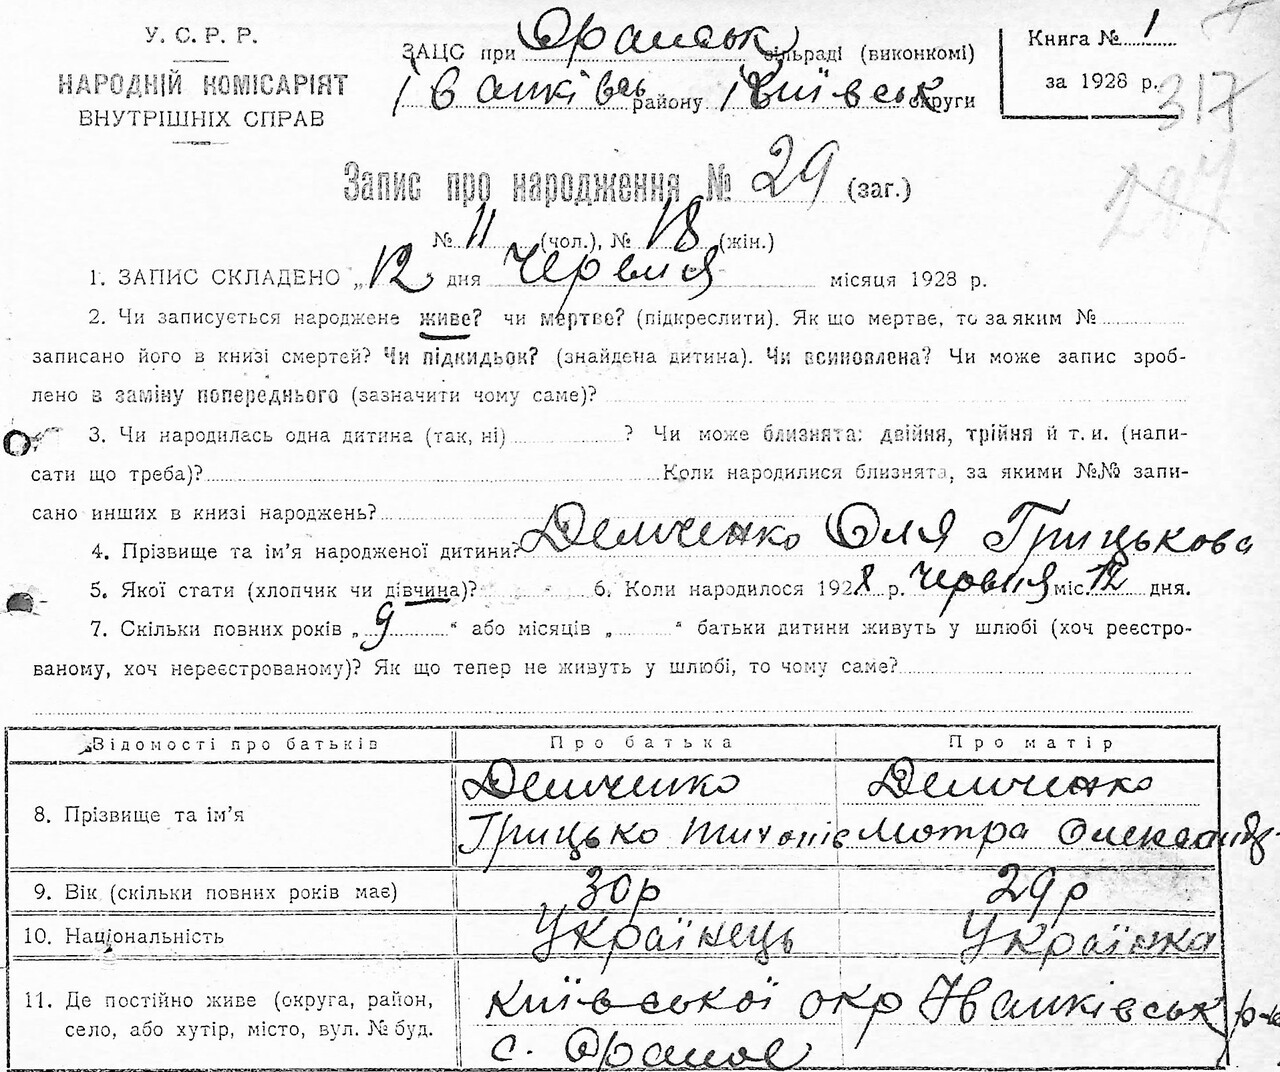 У. С. Р. Р.
НАРОДНІЙ КОМІСАРІЯТ
ВНУТРІШНІХ СПРАВ
ЗАЦС при Оранськ сільраді (виконкомі)
Іванківсь району Київськ округи
Книга № 1
за 1928 р.
317
Запис про народження № 29 (заг.)
№ 11 (чол.), № 18 (жін.)
1. ЗАПИС СКЛАДЕНО „12 дня червня місяця 1928 р.
2. Чи записується народжене живе? чи мертве? (підкреслити). Як що мертве, то за яким №
записано його в книзі смертей? Чи підкидьок? (знайдена дитина). Чи всиновлена? Чи може запис зроб-
лено в заміну попереднього (зазначити чому саме)?
3. Чи народилась одна дитина (так, ні) ? Чи може близнята: двійня, трійня й т. и. (напи-
сати що треба)? Коли народилися близнята, за якими №№ запи-
сано инших в книзі народжень?
4. Прізвище та ім’я народженої дитини? Демченко Оля Грицькова
5. Якої стати (хлопчик чи дівчина)? 6. Коли народилося 1928 р. червня міс. 12 дня.
7. Скільки повних років „ 9 “ або місяців „ “ батьки дитини живуть у шлюбі (хоч реєстро-
ваному, хоч нереєстрованому)? Як що тепер не живуть у шлюбі, то чому саме?
Відомості про батьків Про батька Про матір
8. Прізвище та ім’я Демченко Грицько Тихонів Демченко Мотра Олександр-
9. Вік (скільки повних років має) 30 р 29 р
10. Національність Українець Українка
11. Де постійно живе (округа, район, Київської окр Іванківськ р-н
село, або хутір, місто, вул. № буд. с. Оране